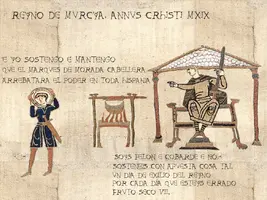 REYNO DE MVRCYA, ANNVS CRHISTI MXIX
E YO SOSTENGO E MANTENGO
QUE EL MARQUES DE MORADA CABELLERA
ARREBATARA EL PODER EN TODA HISPANA
SOYS FELON E COBARDE E NON
SOSTENEIS CON APVESTA COSA TAL
VN DIA DE EXILIO DEL REYNO
POR CADA DIA QUE ESTEYS ERRADO
FRVTO SECO